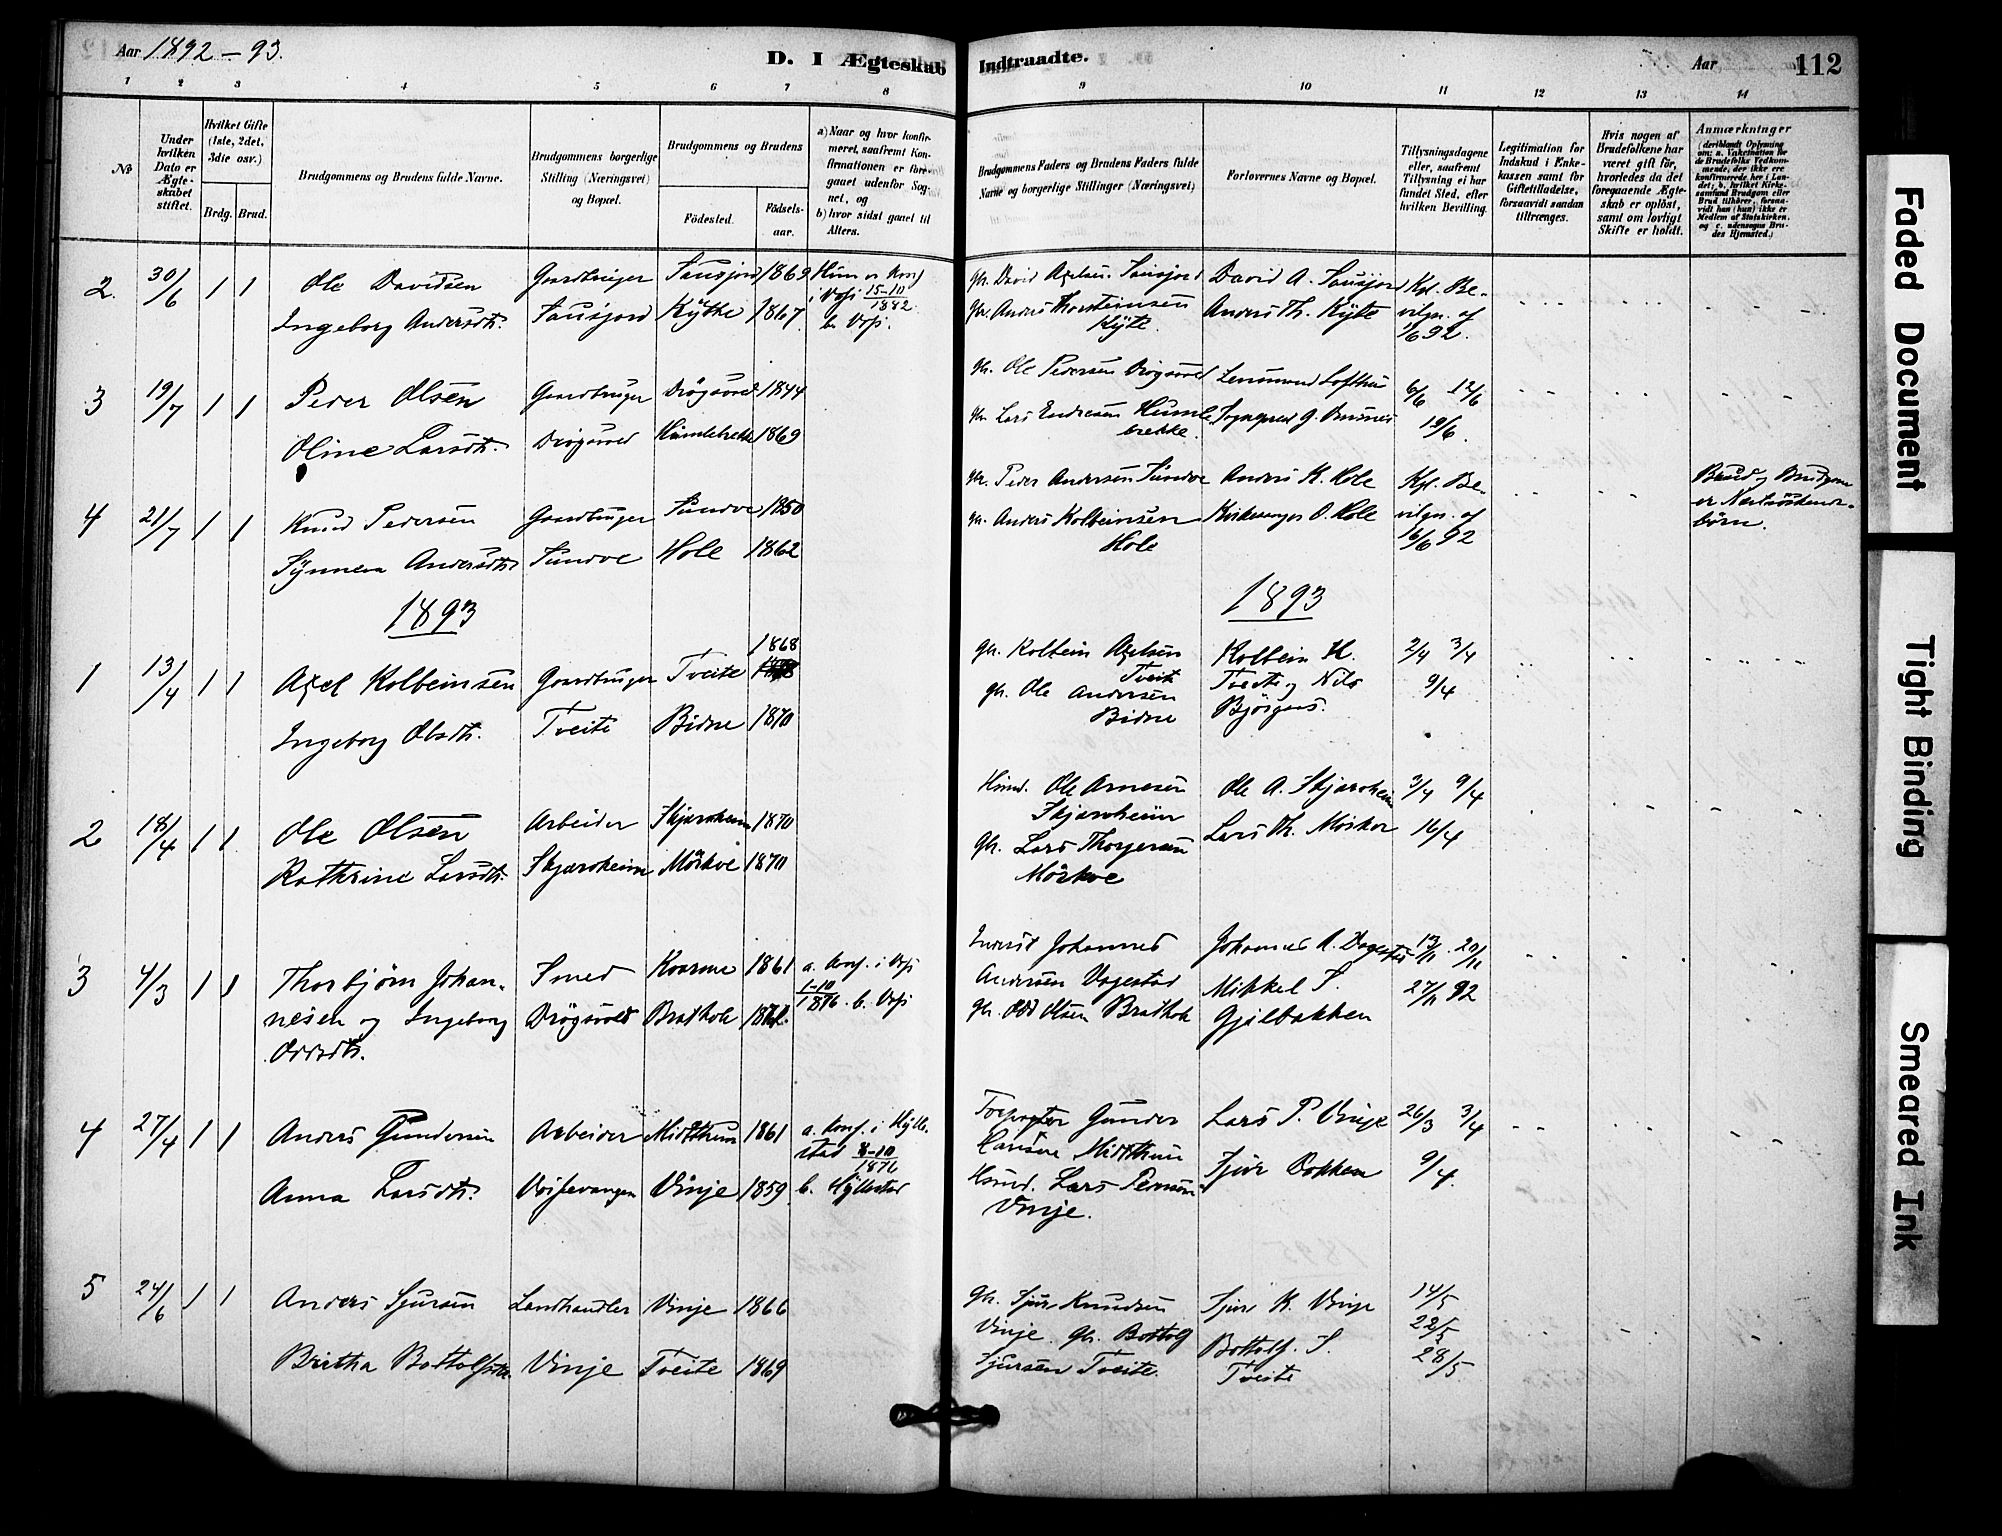 Aar 1892-93.
D. I Ægteskab Indtraadte.
Aar 112
1 2 3 4 5 6 7 8 9 10 11 12 13 14
No
Under hvilken Dato er Ægteskabet stiftet.
Hvilket Gifte (1ste, 2det, 3die osv.)
Brdg. Brud.
Brudgommens og Brudens fulde Navne.
Brudgommens borgerlige Stilling (Næringsvei) og Bopæl.
Brudgommens og Brudens
Fødested.
Fødselsaar.
a) Naar og hvor konfirmeret, saafremt Konfirmationen er foregaaet udenfor Sognet, og
b) hvor sidst gaaet til Alters.
Brudgommens Faders og Brudens Faders fulde Navne og borgerlige Stillinger (Næringsvei)
Forlovernes Navne og Bopæl.
Tillysningsdagene eller, saafremt Tillysning ei har fundet Sted, efter hvilken Bevilling.
Legitimation for Indskud i Enkekassen samt for Giftetilladelse, forsaavidt saadan tiltrænges.
Hvis nogen af Brudefolkene har været gift før, hvorledes da det foregaaende Ægteskab er opløst, samt om lovligt Skifte er holdt.
Anmærkninger
2. 30/6 1 1 Ole Davidsen Gaardbruger Sausjord 1869
i Vossi 15-10 1882
Gbr. David Axelsen Sausjord David A. Sausjord Kgl. Be-
Ingeborg Andersdtr. Sausjord Kyte 1867 b. Voss.
Gbr. Anders Thorsteinsen Kyte. Anders Th. Kyte vilgn. af 1/6 92.
3 19/7 1 1 Peder Olsen Gaardbruger 1844
Gbr. Ole Pedersen Lensmand Lofthus 6/6 12/6
Oline Larsdtr. Humlebrekke 1869
Gbr. Lars Endresen Humlebrekke. 19/6.
4 21/7 1 1 Knud Pedersen Gaardbruger Sundve 1850
Gbr. Peder Andersen Sundve Anders K. Hole Kgl. Be-
Brud og Brudgom er Næstsøskendebørn.
Synneva Andersdtr Sundve Hole 1862
Gbr. Anders Kolbeinsen Hole Kirkesanger O. Hole vilgn. af 16/6 92
1893 1893
1 13/4 1 1 Axel Kolbeinsen Gaardbruger Tveite 1868
Gbr. Kolbein Axelsen Tveit Kolbein H. Tveite og Nils Bjørgaas. 2/4 3/4
Ingeborg Olsdtr. Tveite Bidne 1870
Gbr. Ole Andersen Bidne 9/4
2 18/4 1 1 Ole Olsen Arbeider Skjærsheim 1870
Husmd. Ole Arnesen Skjærsheim Ole A. Skjærsheim 3/4 9/4
Kathrine Larsdtr. Skjærsheim Mörkve 1870
Gbr. Lars Thorgersen Mörkve Lars Th. Mörkve 16/4
3 4/3 1 1 Thorbjørn Johannesen og Ingeborg Oddsdtr.
Smed 1861 a. Konf. i Voss 1-10 1876. b. Voss
Brathole
Inderst Johannes Andersen Dagestad Johannes A. Dagestad
Gbr. Odd Olsen Brathole Mikkel S. Gjelbakken 27/11 92
4 27/4 1 1 Anders Gundersen Arbeider Midtthun 1861
a. Konf. i Hyllestad 8-10 1876
Gunder Midtthun Lars P. Vinje 26/3 3/4
Anna Larsdtr. Vossevangen Vinje 1859 b. Hyllestad
Husmd. Lars Persen Vinje. Sjur Bakken 9/4.
5 24/6 1 1 Anders Sjursen Landhandler Vinje 1866
Gbr. Sjur Knudsen Vinje Sjur K. Vinje 14/5 22/5
Britha Bottolfsdtr. Vinje Tveite 1869
Gbr. Bottolf Sjursen Tveite. Bottolf. S. Tveite 28/5
Faded Document
Tight Binding
Smeared Ink